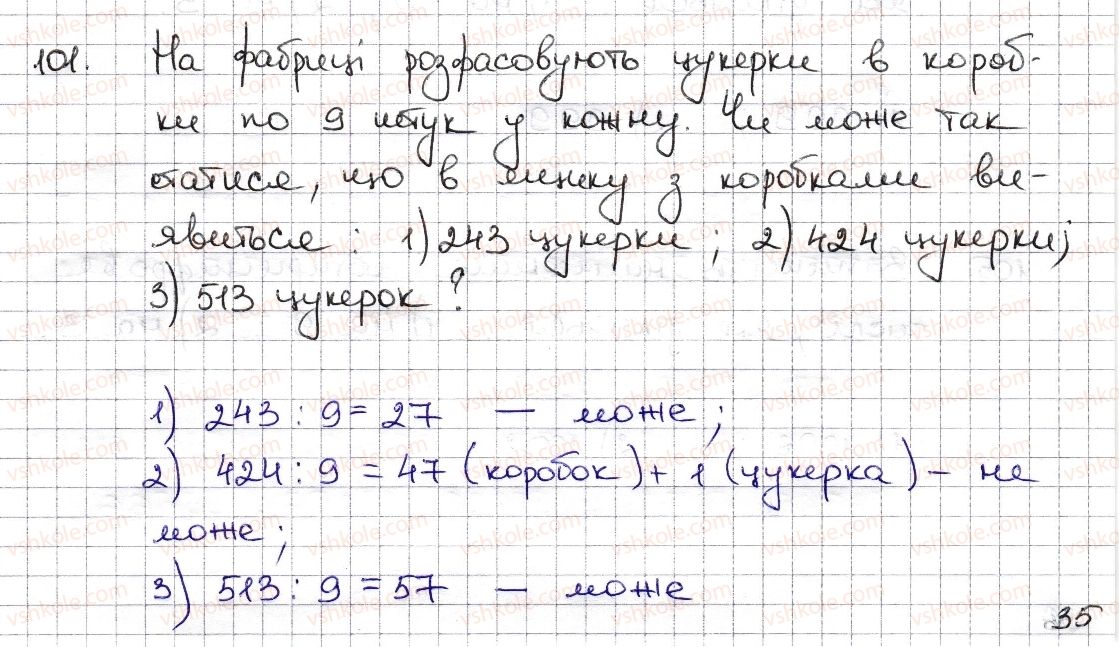 101. На фабриці розфасовують цукерки в короб-
ки по 9 штук у кожну. Чи може так
статися, що в ящику з коробками ви-
явиться: 1) 243 цукерки; 2) 424 цукерки;
3) 513 цукерок?
1) 243 : 9 = 27 — може;
2) 424 : 9 = 47 (коробок) + 1 (цукерка) – не
може;
3) 513 : 9 = 57 — може
35
vshkole.com